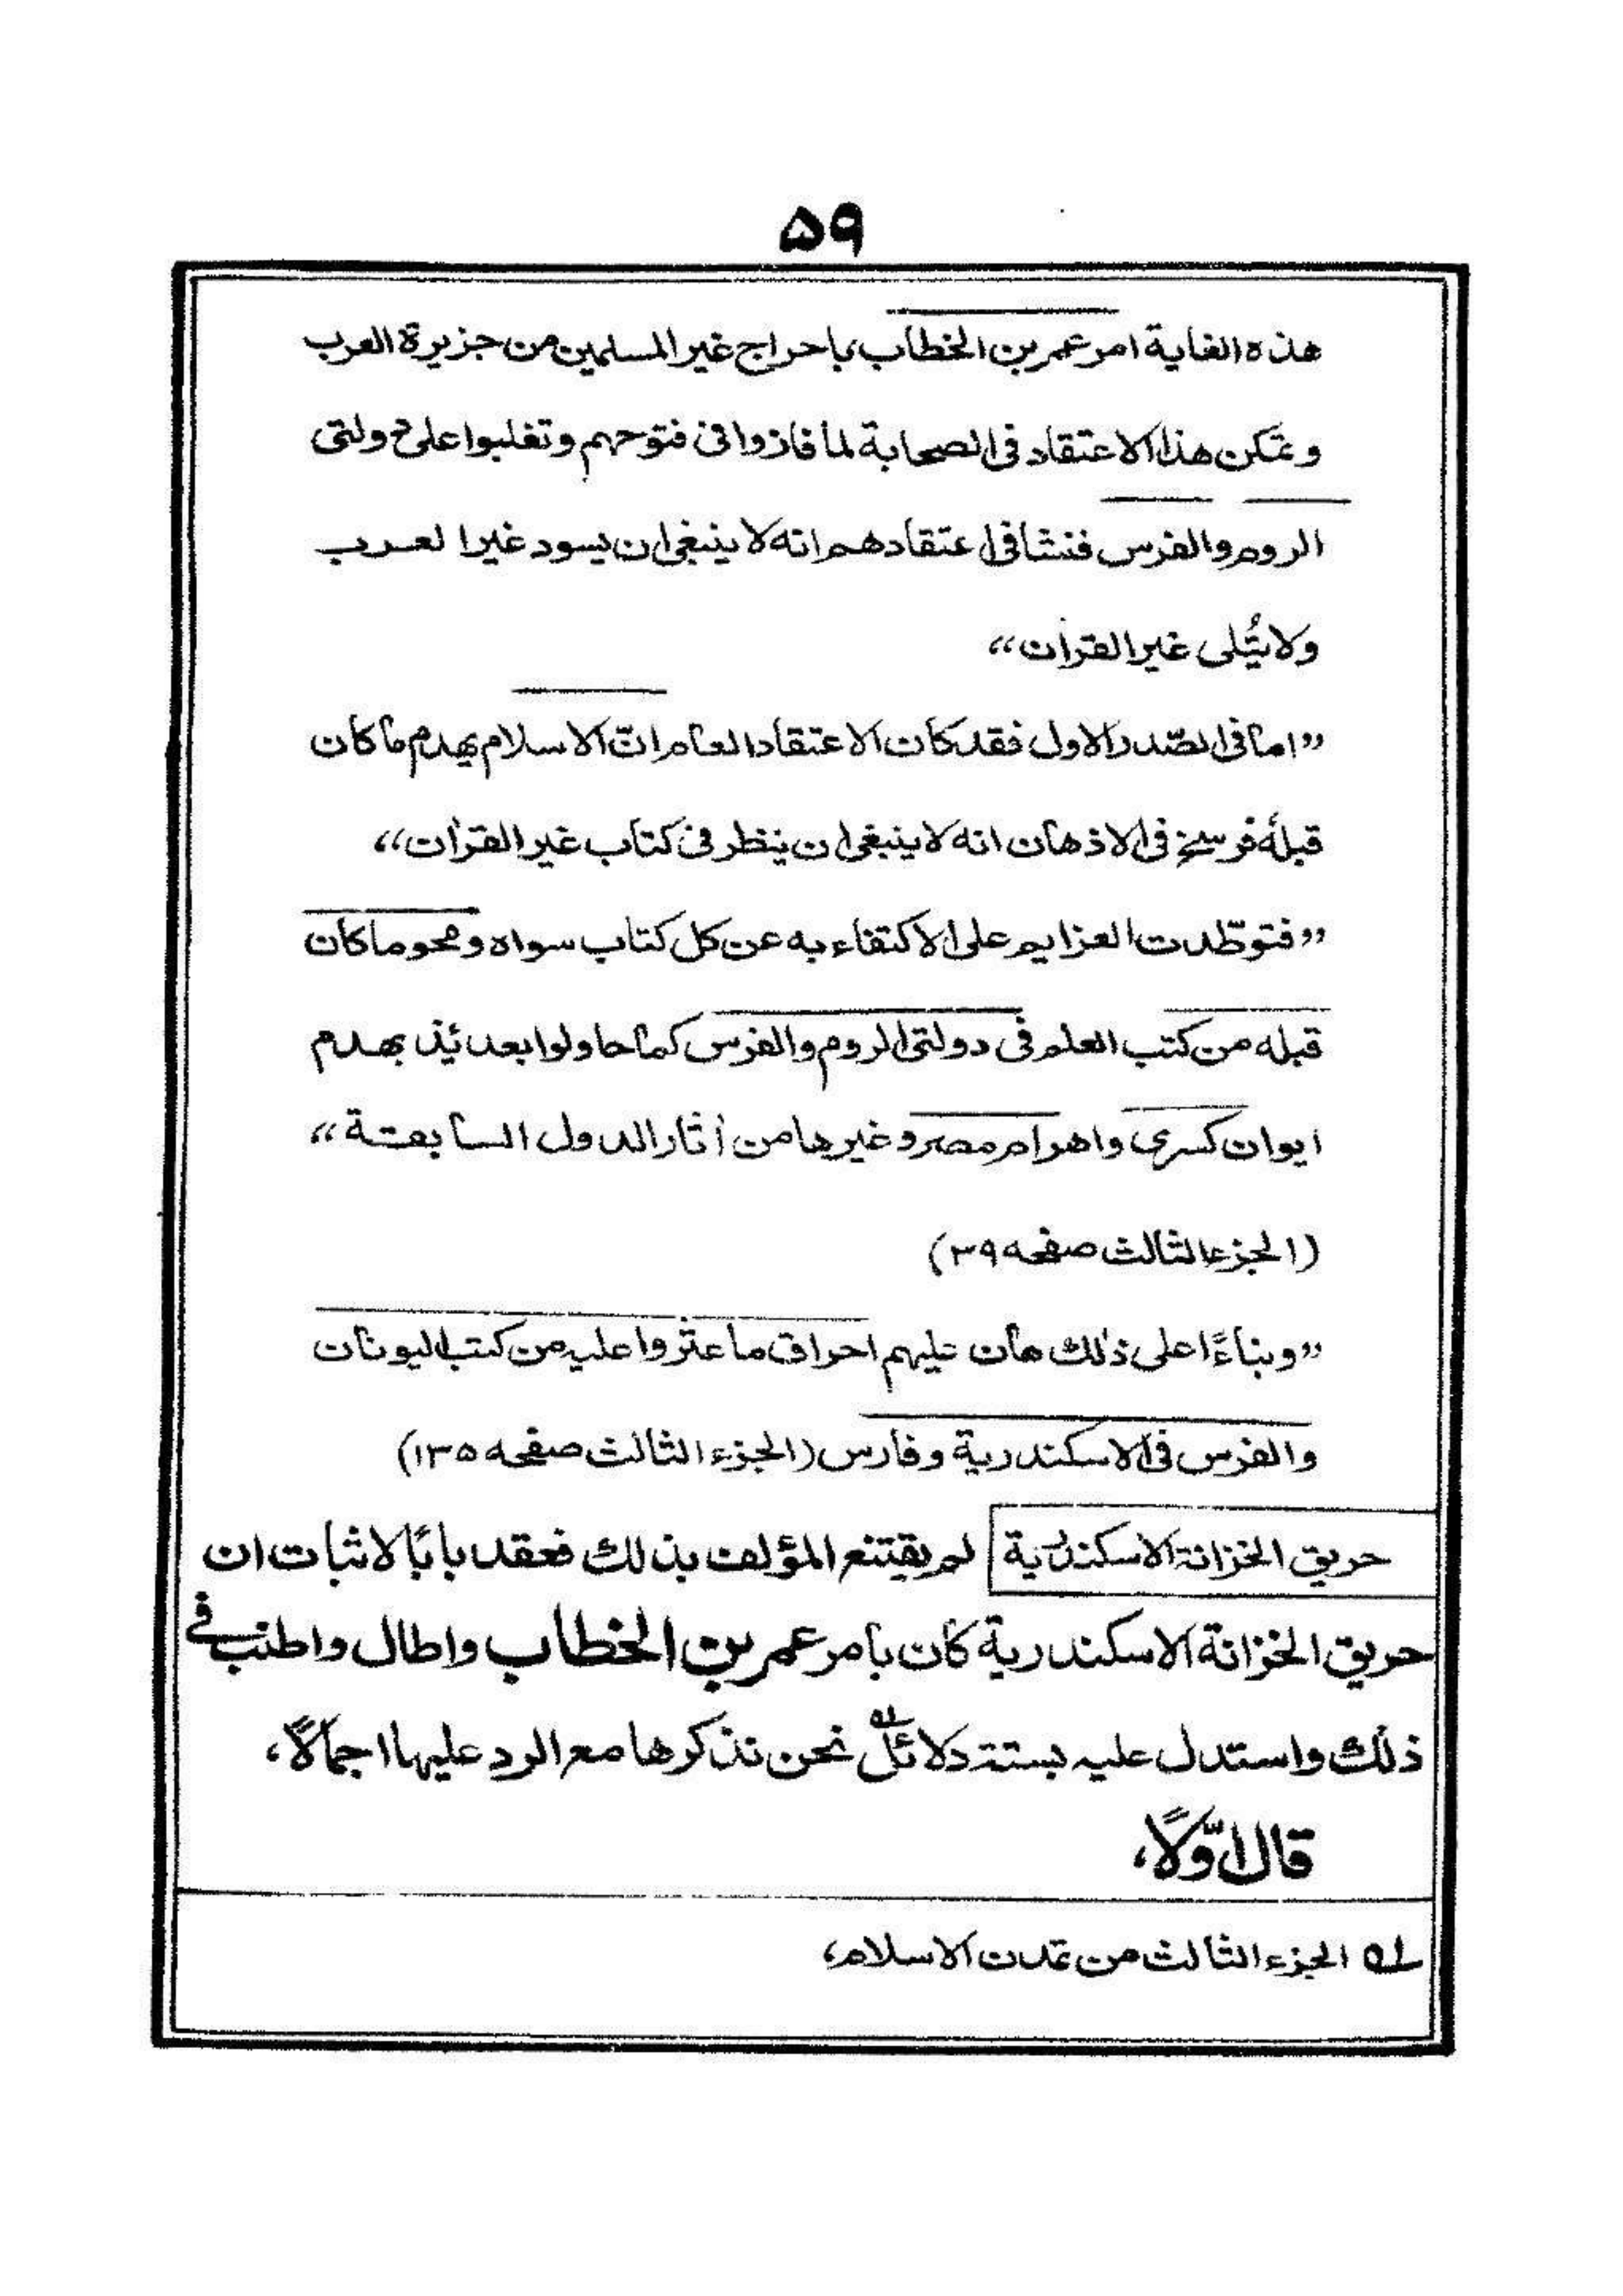 ۵۹
هذه الغاية امر عمر بن الخطاب باحراج غير المسلمين من جزيرة العرب
وتمكن هذا الاعتقاد فى الصحابة لما فازوا فى فتوحهم وتغلبوا على دولتى
الروم والفرس فنشا فى اعتقادهم انه لا ينبغى ان يسود غير العرب
ولا يُتلى غير القران“
”اما فى الصّدر الاول فقد كان الاعتقاد العام انّ الاسلام يهدم ما كان
قبله فرسخ فى الاذهان انه لا ينبغى ان ينظر فى كتاب غير القرآن“
”فتوطّدت العزايم على الاكتفاء به عن كل كتاب سواه ومحو ما كان
قبله من كتب العلم فى دولتى الروم والفرس كما حاولوا بعدئذٍ بهدم
ايوان كسرى واهرام مصر وغيرها من أثار الدول السابقة“
(الجزء الثالث صفحه ۳۹)
”وبناءً اعلى ذلك هان عليهم احراق ما عثروا عليه من كتب اليونان
والفرس فى الاسكندرية وفارس (الجزء الثالث صفحه ۱۳۵)
حريق الخزانة الاسكندرية لم يقتنع المؤلف بذلك فعقد بابًا لاثبات ان
حريق الخزانة الاسكندرية كان بامر عمر بن الخطاب واطال واطنب فى
ذلك واستدل عليه بستة دلائل له نحن نذكرها مع الرد عليها اجمالًا،
قال اوّلًا،
له الجزء الثالث من تمدن الاسلام،